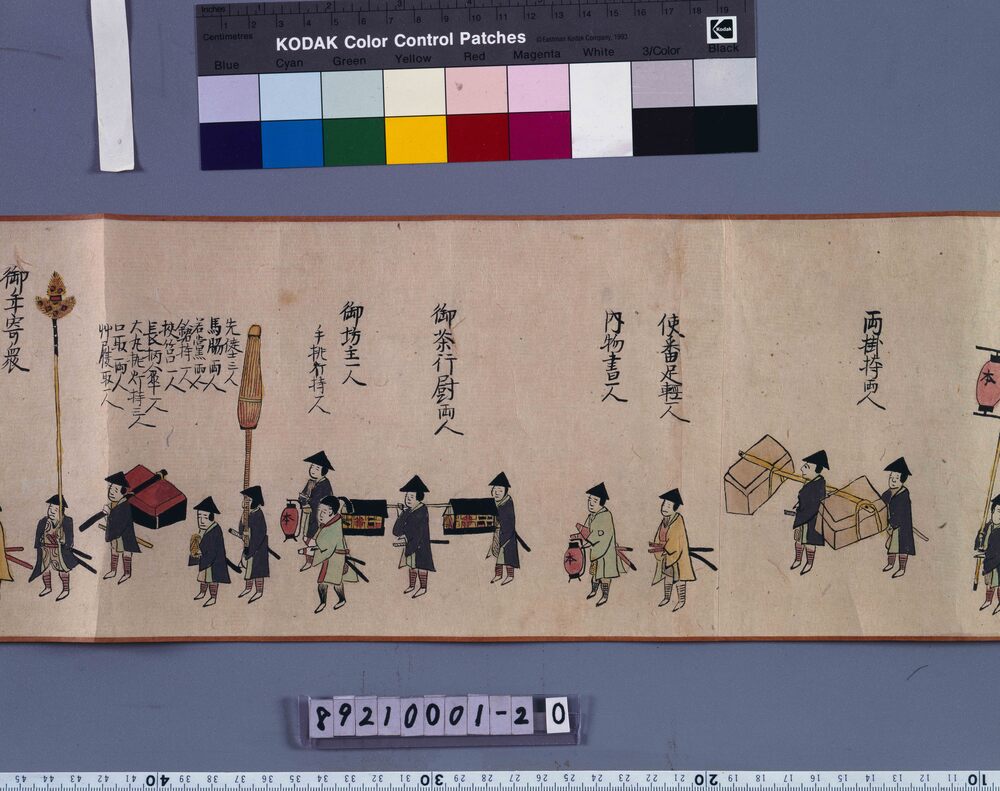 Inches 1 2 3 4 5 6 7
Centimetres 1 2 3 4 5 6 7 8 9 10 11 12 13 14 15 16 17 18 19
KODAK Color Control Patches
©Eastman Kodak Company, 1993
Kodak
Blue Cyan Green Yellow Red Magenta White 3/Color Black
両掛持両人
使番足軽一人
内物書一人
御茶行厨両人
御坊主一人
手挑灯持一人
先徒三人
馬脇両人
若党両人
鎗持一人
挟筥一人
長柄傘一人
大丸挑灯持三人
口取両人
草履取一人
御年寄衆
本
本
本
89210001-20
45 44 43 42 41 40 39 38 37 36 35 34 33 32 31 30 29 28 27 26 25 24 23 22 21 20 19 18 17 16 15 14 13 12 11 10